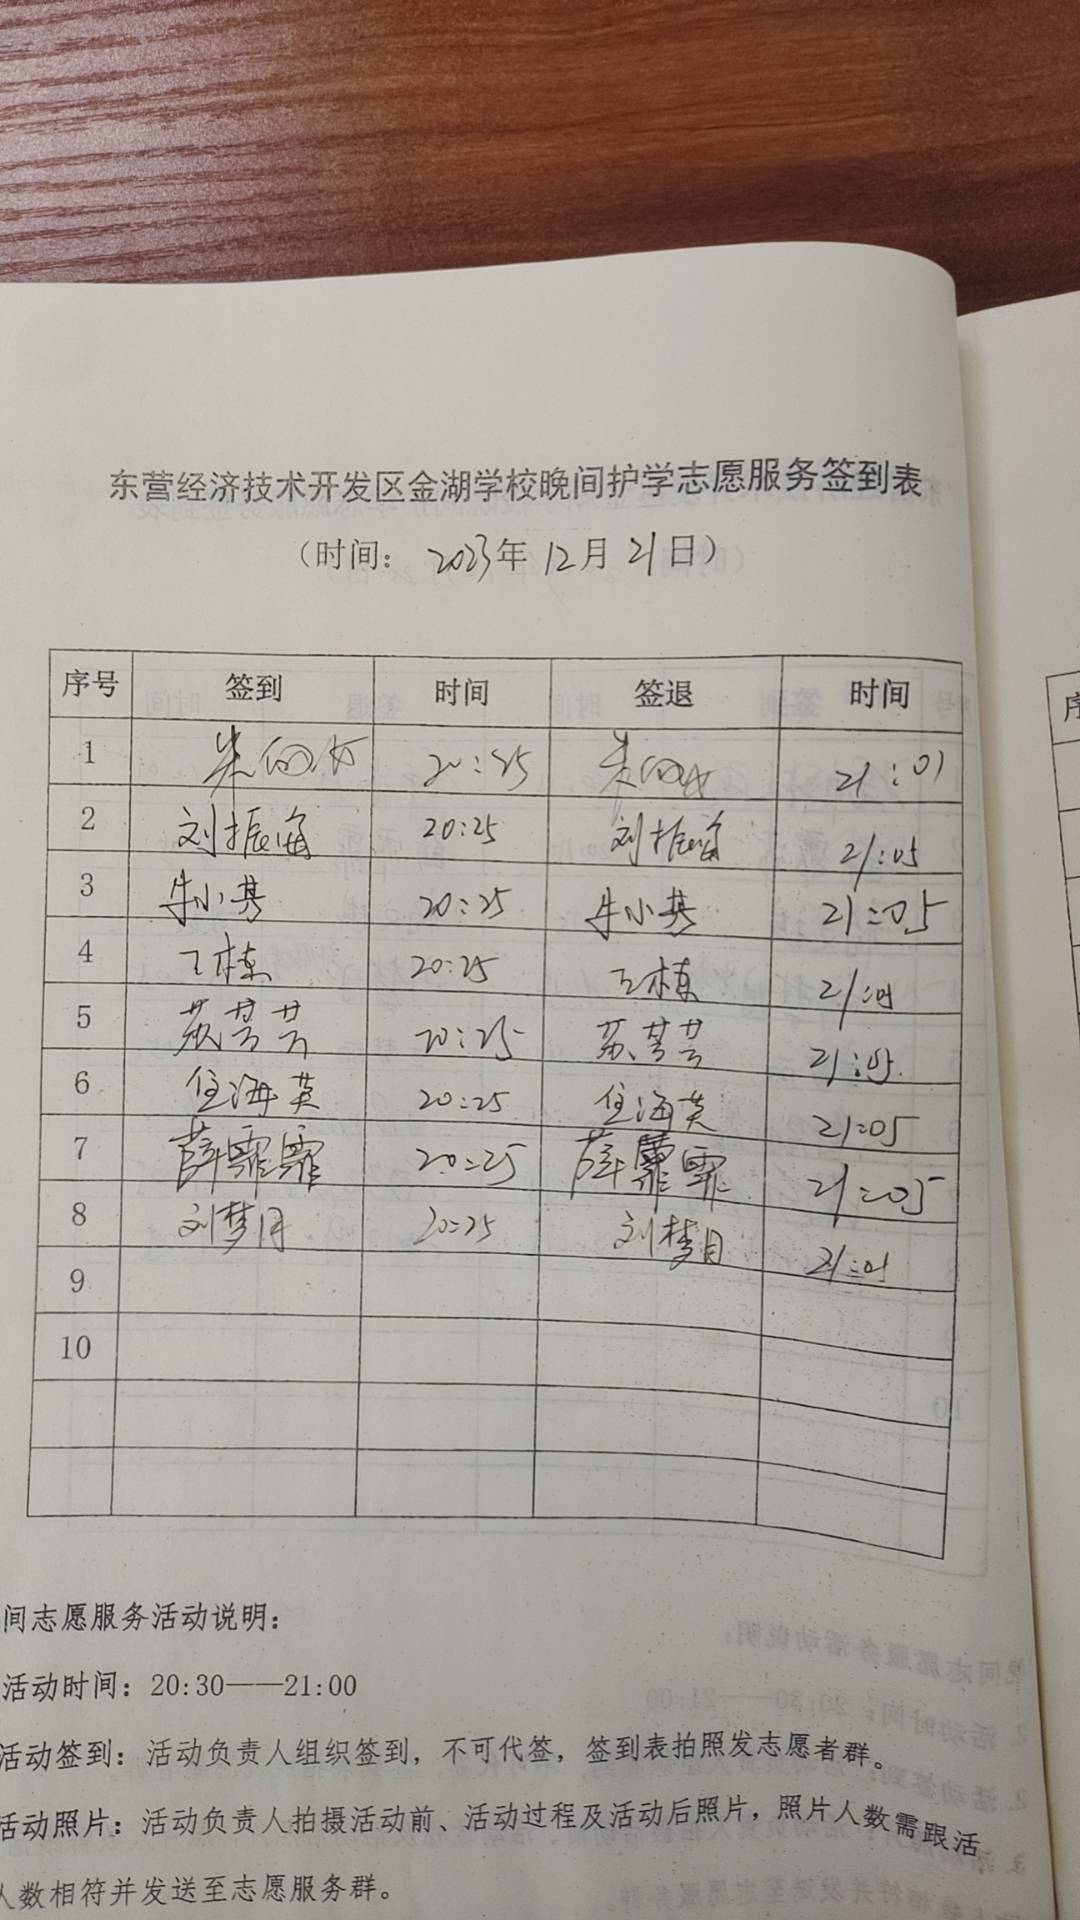 东营经济技术开发区金湖学校晚间护学志愿服务签到表
（时间： 2023年 12月 21日）
序号 签到 时间 签退 时间
1 20:25 21:01
2 刘振海 20:25 刘振海 21:05
3 牛小英 20:25 牛小英 21:05
4 王栋 20:25 王栋 21:01
5 苏芳芳 20:25 苏芳芳 21:05
6 任海英 20:25 任海英 21:05
7 薛霏霏 20:25 薛霏霏 21:05
8 刘梦月 20:25 刘梦月 21:01
9
10
间志愿服务活动说明：
活动时间：20:30——21:00
活动签到：活动负责人组织签到，不可代签，签到表拍照发志愿者群。
活动照片：活动负责人拍摄活动前、活动过程及活动后照片，照片人数需跟活
人数相符并发送至志愿服务群。